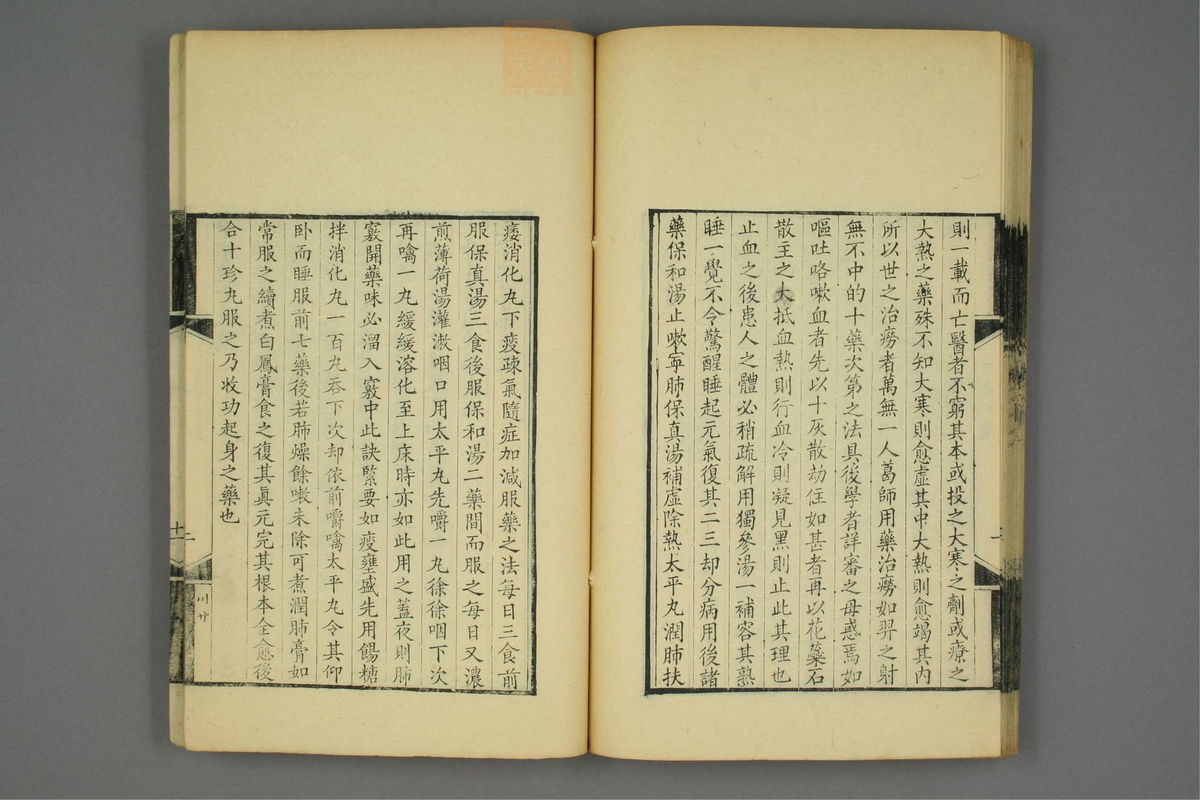 則一載而亡醫者不窮其本或投之大寒之劑或療之
大熱之藥殊不知大寒則愈虛其中大熱則愈竭其內
所以世之治癆者萬無一人葛師用藥治癆如羿之射
無不中的十藥次第之法具後學者詳審之毋惑焉如
嘔吐咯嗽血者先以十灰散劫住如甚者再以花蘂石
散主之大抵血熱則行血冷則凝見黑則止此其理也
止血之後患人之體必稍疏解用獨參湯一補容其熟
睡一覺不令驚醒睡起元氣復其二三却分病用後諸
藥保和湯止嗽寧肺保真湯補虛除熱太平丸潤肺扶
痿消化丸下痰疎氣隨症加減服藥之法每日三食前
服保真湯三食後服保和湯二藥間而服之每日又濃
煎薄荷湯灌漱咽口用太平丸先嚼一丸徐徐咽下次
再噙一丸緩緩溶化至上床時亦如此用之蓋夜則肺
竅開藥味必溜入竅中此訣緊要如痰壅盛先用餳糖
拌消化丸一百丸吞下次却依前嚼噙太平丸令其仰
卧而睡服前七藥後若肺燥餘嗽未除可煮潤肺膏如
常服之續煮白鳳膏食之復其眞元完其根本全愈後
合十珍丸服之乃收功起身之藥也